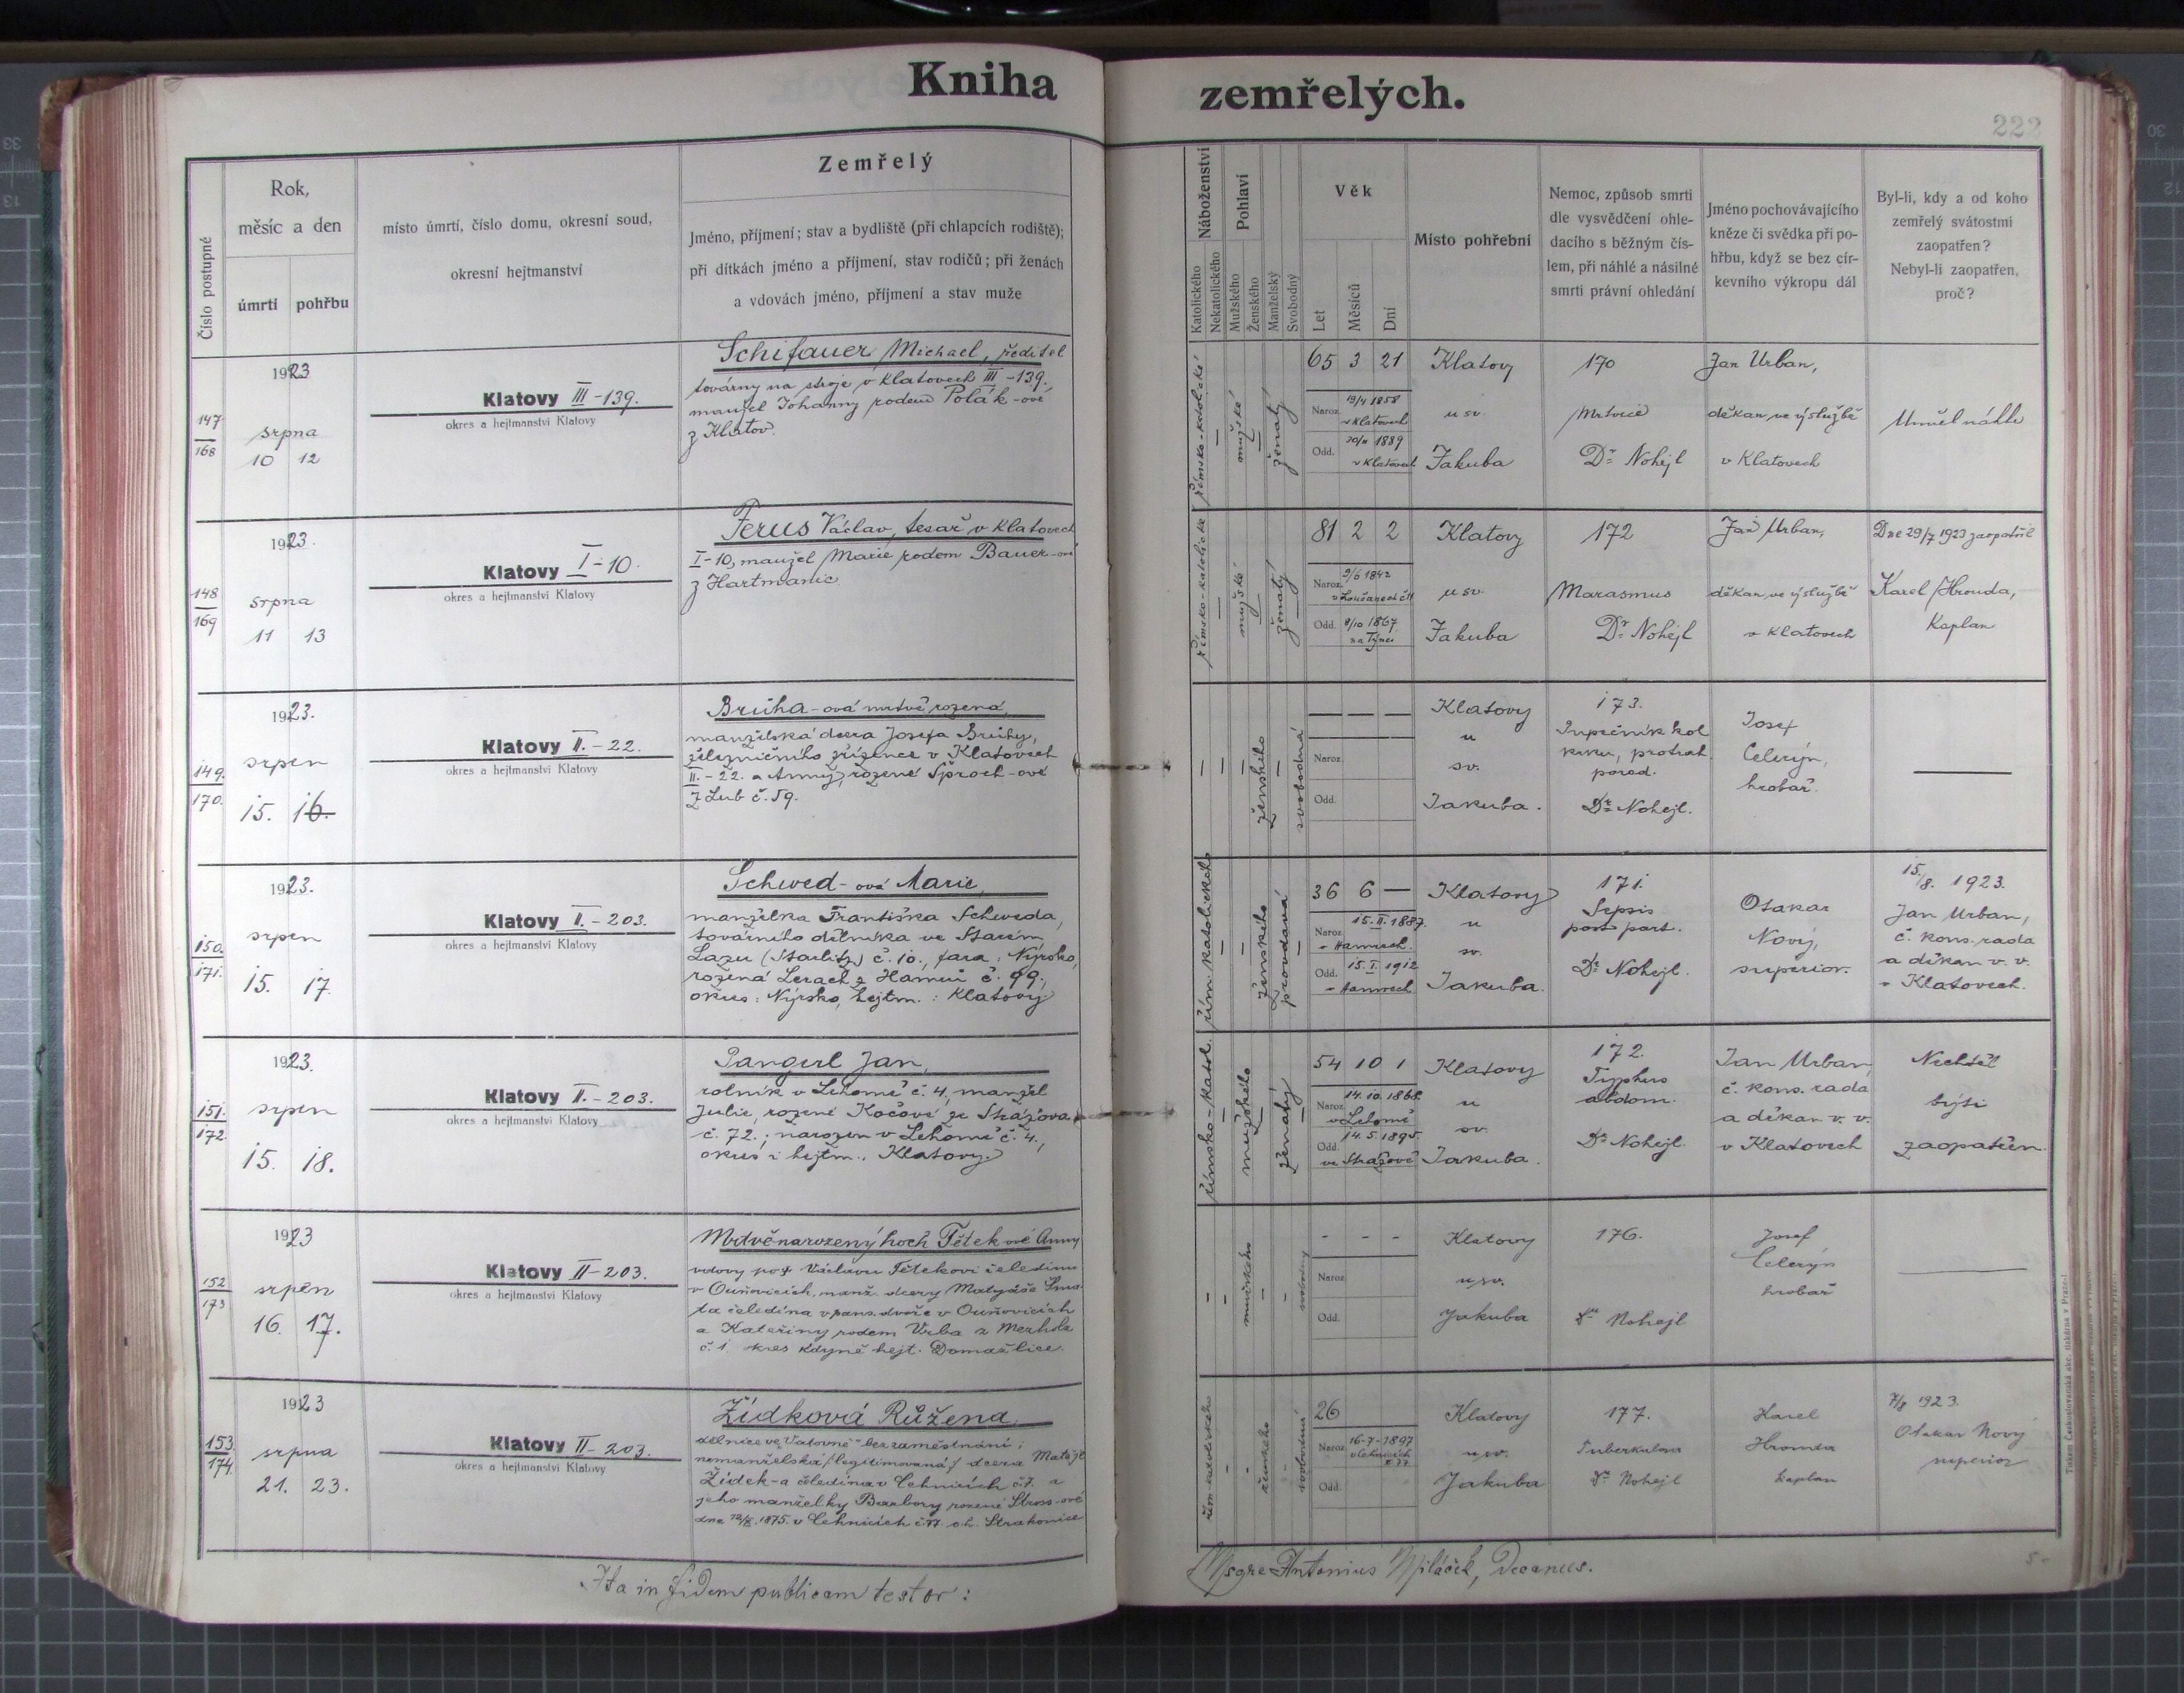 Kniha zemřelých.
222
Číslo postupné
Rok,
měsíc a den
úmrtí pohřbu
místo úmrtí, číslo domu, okresní soud,
okresní hejtmanství
Zemřelý
Jméno, příjmení; stav a bydliště (při chlapcích rodiště);
při dítkách jméno a příjmení, stav rodičů; při ženách
a vdovách jméno, příjmení a stav muže
Náboženství
Katolického
Nekatolického
Pohlaví
Mužského
Ženského
Manželský
Svobodný
Věk
Let
Měsíců
Dní
Místo pohřební
Nemoc, způsob smrti
dle vysvědčení ohle-
dacího s běžným čís-
lem, při náhlé a násilné
smrti právní ohledání
Jméno pochovávajícího
kněze či svědka při po-
hřbu, když se bez cír-
kevního výkropu dál
Byl-li, kdy a od koho
zemřelý svátostmi
zaopatřen?
Nebyl-li zaopatřen,
proč?
147
168
1923
srpna
10 12
Klatovy III-139.
okres a hejtmanství Klatovy
Schifauer Michael, ředitel
továrny na stroje v Klatovech III-139.,
manžel Johanny rodem Polák-ové
z Klatov.
římsko-katolické
mužské
ženatý
65 3 21
Naroz. 19/4 1858
v Klatovech
Odd. 20/11 1889
v Klatovech
Klatovy
u sv.
Jakuba
170
Mrtvice
Dr Nohejl
Jan Urban,
děkan ve výslužbě
v Klatovech
Umřel náhle
148
169
1923.
srpna
11 13
Klatovy I-10.
okres a hejtmanství Klatovy
Ferus Václav, tesař v Klatovech
I-10, manžel Marie rodem Bauer-ové
z Hartmanic
římsko-katolické
mužské
ženatý
81 2 2
Naroz. 9/6 1842
Odd. 8/10 1867
na Týnci
Klatovy
u sv.
Jakuba
172
Marasmus
Dr Nohejl
Jan Urban,
děkan ve výslužbě
v Klatovech
Dne 29/7 1923 zaopatřil
Karel Hrouda,
Kaplan
149.
170.
1923.
srpen
15. 16.
Klatovy II.-22.
okres a hejtmanství Klatovy
Brůha-ová mrtvě rozená,
manželská dcera Josefa Brůhy,
železničního zřízence v Klatovech
II.-22. a Anny, rozené Šproch-ové
z Lub č. 59.
ženského
svobodná
— — —
Naroz.
Odd.
Klatovy
u
sv.
Jakuba.
173.
Pupečník kol
krku, protrah.
porod.
Dr Nohejl.
Josef
Celerýn,
hrobař.
—
150.
171.
1923.
srpen
15. 17.
Klatovy II.-203.
okres a hejtmanství Klatovy
Schwed-ová Marie,
manželka Františka Schweda,
továrního dělníka ve Starém
Lazu (Starlitz) č. 10., fara: Nýrsko,
rozená Lerach z Hamrů č. 99.,
okres: Nýrsko, hejtm.: Klatovy
řím. katolického
ženského
provdaná
36 6 —
Naroz. 15.II.1887.
v Hamrech.
Odd. 15.I.1912
v Hamrech
Klatovy
u
sv.
Jakuba.
171.
Sepsis
post part.
Dr Nohejl.
Otakar
Nový,
superior.
15./8. 1923.
Jan Urban,
č. kons. rada
a děkan v. v.
v Klatovech.
151.
172.
1923.
srpen
15. 18.
Klatovy II.-203.
okres a hejtmanství Klatovy
Pangerl Jan,
rolník v Lehomě č. 4, manžel
Julie, rozené Kočové ze Strážova
č. 72.; narozen v Lehomě č. 4.,
okres i hejtm.: Klatovy.
římsko-katol.
mužského
ženatý
54 10 1
Naroz. 14.10.1868.
v Lehomě
Odd. 14.5.1895.
ve Strážově
Klatovy
u
sv.
Jakuba.
172.
Typhus
abdom.
Dr Nohejl.
Jan Urban,
č. kons. rada
a děkan v. v.
v Klatovech
Nechtěl
býti
zaopatřen.
152
173
1923
srpen
16. 17.
Klatovy II-203.
okres a hejtmanství Klatovy
Mrtvěnarozený hoch Tětek ové Anny
vdovy po † Václavu Tětekovi čeledínu
v Ouňovicích, manž. dcery Matyáše
čeledína v pans. dvoře v Ouňovicích
a Kateřiny rodem Vrba z Mezholz
č. 1. okres Kdyně hejt. Domažlice.
mužského
svobodný
- - -
Naroz.
Odd.
Klatovy
u sv.
Jakuba
176.
Dr Nohejl
Josef
Celerýn
hrobař
—
153.
174.
1923
srpna
21. 23.
Klatovy II-203.
okres a hejtmanství Klatovy
Žídková Růžena
dělnice ve "Vatovně" bez zaměstnání;
nemanželská /legitimovaná/ dcera Matěje
Žídek-a čeledína v Cehnicích č. 7. a
jeho manželky Barbory rozené Stross-ové
v Cehnicích č. 77 oh. Strakonice
řím. katolického
ženského
svobodná
26
Naroz. 16-7-1897
v Cehnicích
č. 77
Odd.
Klatovy
u sv.
Jakuba
177.
Tuberkulosa
Dr Nohejl
Karel
Hrouda
kaplan
7/8 1923.
Otakar Nový
superior
Ita in fidem publicam testor:
Msgre Antonius Miláček, Decanus.